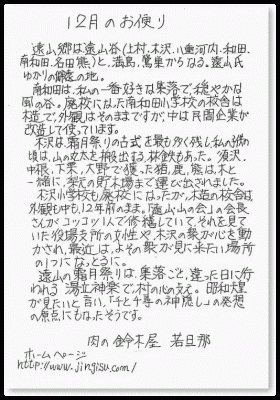 12月のお便り
遠山郷は遠山谷(上村、木沢、八重河内、和田、
南和田、名田熊)と、満島、鶯巣からなる。遠山氏
ゆかりの領地の地。
南和田は、私の一番好きな集落で、穏やかな
風の谷。廃校になった南和田小学校の校舎は
木造で、外観はそのままですが、中は民間企業が
改造して使っています。
木沢は、霜月祭りの古式を最も多く残し、私の子供の
頃は、山の丸太を搬出する、林鉄もあった。須沢、
中根、下栗、大野で獲った猪、鹿、熊は、木と
一緒に、梨元の貯木場まで運び出されました。
木沢小学校も、廃校になったが、木造の校舎は
外観も中も、12年前のまま。「遠山山の会」の会長
さんが、コツコツ1人で修繕していて、それを見て
いた役場支所の女性や、木沢の衆が心を動
かされ、最近は、よその衆が見に来たい場所
の1つになったらに。
遠山の霜月祭りは、集落ごと、違った日に行
われる 湯立神楽で、村の心の支え。昭和天皇
が見たいと言い、「千と千尋の神隠し」の発想
の原点にもなったそうです。
肉の鈴木屋 若旦那
ホームページ
http://www.jingisu.com/